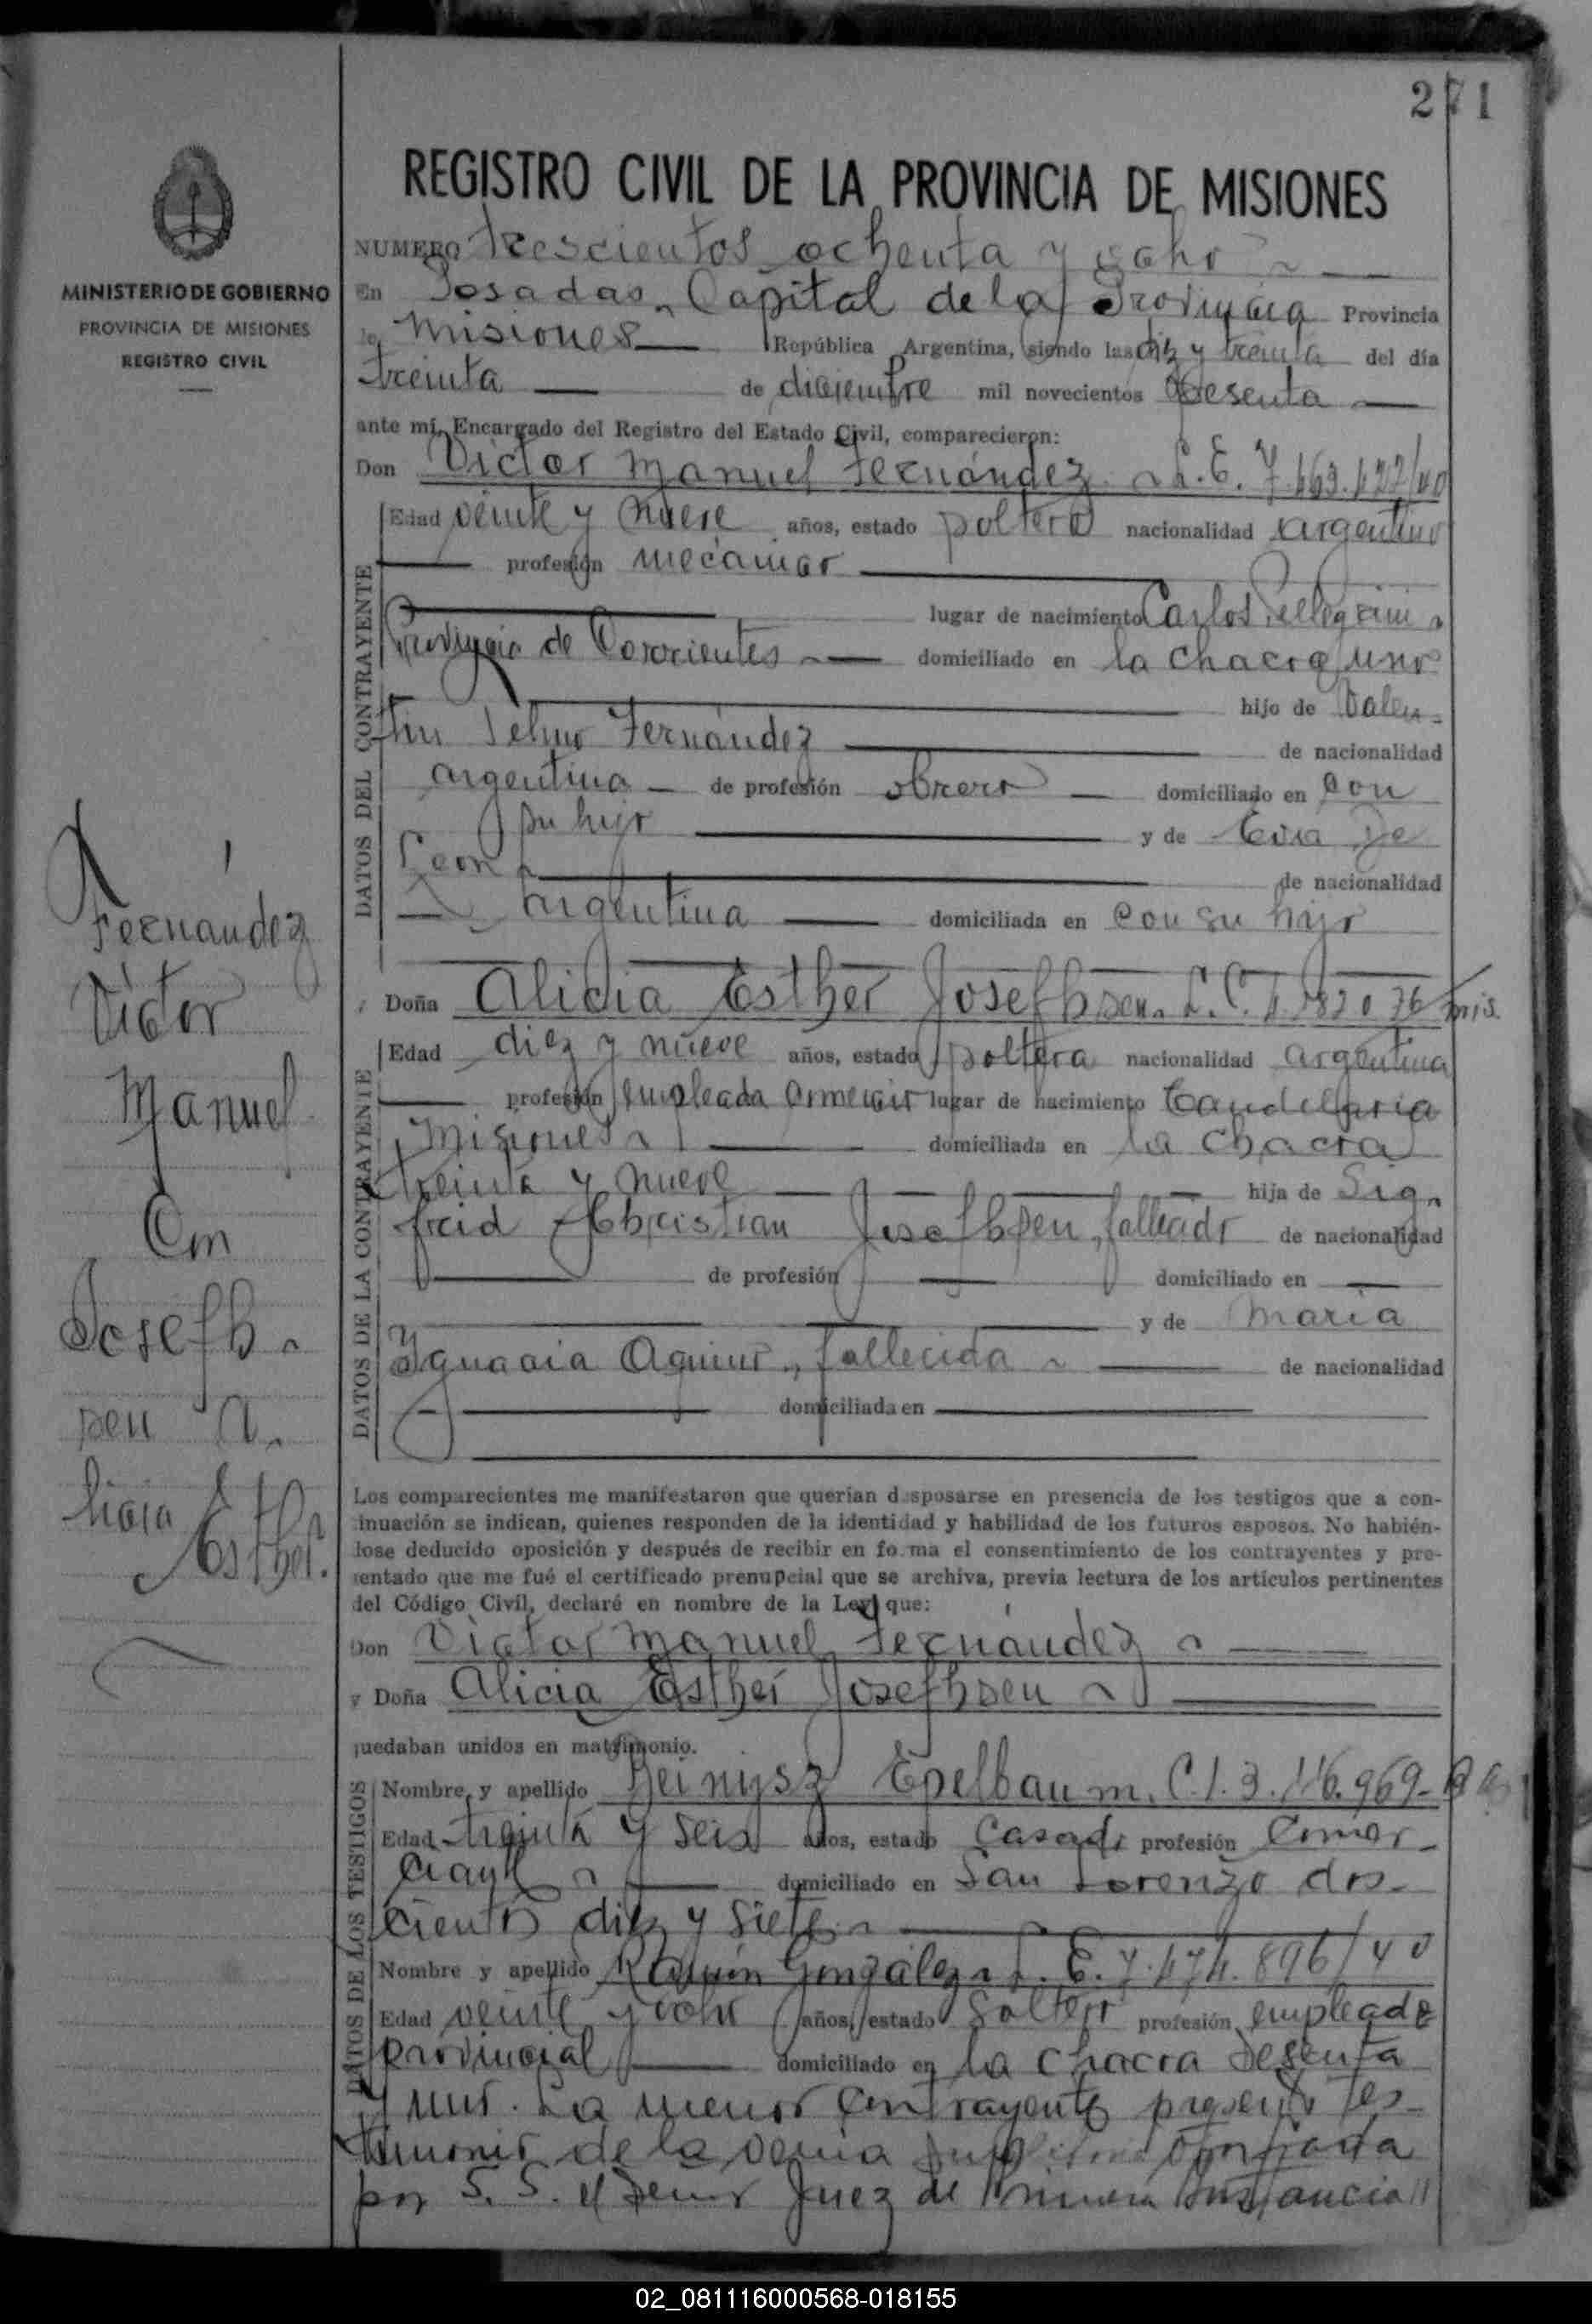 271
REGISTRO CIVIL DE LA PROVINCIA DE MISIONES
MINISTERIO DE GOBIERNO
PROVINCIA DE MISIONES
REGISTRO CIVIL
NUMERO trescientos ochenta y ocho
En Posadas, Capital de la Provincia Provincia
de Misiones República Argentina, siendo las diez y treinta del día
treinta de diciembre mil novecientos sesenta
ante mí, Encargado del Registro del Estado Civil, comparecieron:
Don Victor Manuel Fernández L. E. 7.463.427/40
Edad veinte y nueve años, estado soltero nacionalidad argentino
profesión mecánico
lugar de nacimiento Carlos Pellegrini
Provincia de Corrientes domiciliado en la chacra uno
hijo de Valen-
tin Telmo Fernández de nacionalidad
argentina de profesión obrero domiciliado en con
su hijo y de Eva De
Leon de nacionalidad
argentina domiciliada en con su hijo
DATOS DEL CONTRAYENTE
Doña Alicia Esther Josefhsen. L. C. mis.
Edad diez y nueve años, estado soltera nacionalidad argentina
profesión empleada comercio lugar de nacimiento Candelaria
Misiones domiciliada en la chacra
treinta y nueve hija de Sig-
frid Christian Josefhsen, fallecido de nacionalidad
de profesión domiciliado en
y de Maria
Ygnacia Aquino, fallecida de nacionalidad
domiciliada en
DATOS DE LA CONTRAYENTE
Fernández
Victor
Manuel
Con
Josefh-
sen A-
licia
Esther.
Los comparecientes me manifestaron que querían desposarse en presencia de los testigos que a con-
tinuación se indican, quienes responden de la identidad y habilidad de los futuros esposos. No habién-
dose deducido oposición y después de recibir en forma el consentimiento de los contrayentes y pre-
sentado que me fué el certificado prenupcial que se archiva, previa lectura de los artículos pertinentes
del Código Civil, declaré en nombre de la Ley que:
Don Victor Manuel Fernández
y Doña Alicia Esther Josefhsen
quedaban unidos en matrimonio.
Nombre y apellido Epelbaum. C.I. 3.116.969
Edad treinta y seis años, estado casado profesión comer-
ciante domiciliado en San Lorenzo dos-
cientos diez y siete
Nombre y apellido Ramón González L. E. 7.474.896/40
Edad veinte y ocho años, estado soltero profesión empleado
provincial domiciliado en la chacra sesenta
y uno. La menor contrayente presentó tes-
timonio de la venia supletoria otorgada
por S. S. el Señor Juez de Primera Instancia
DATOS DE LOS TESTIGOS
02_081116000568-018155